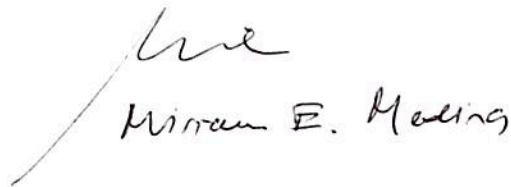 Miriam E. Medina